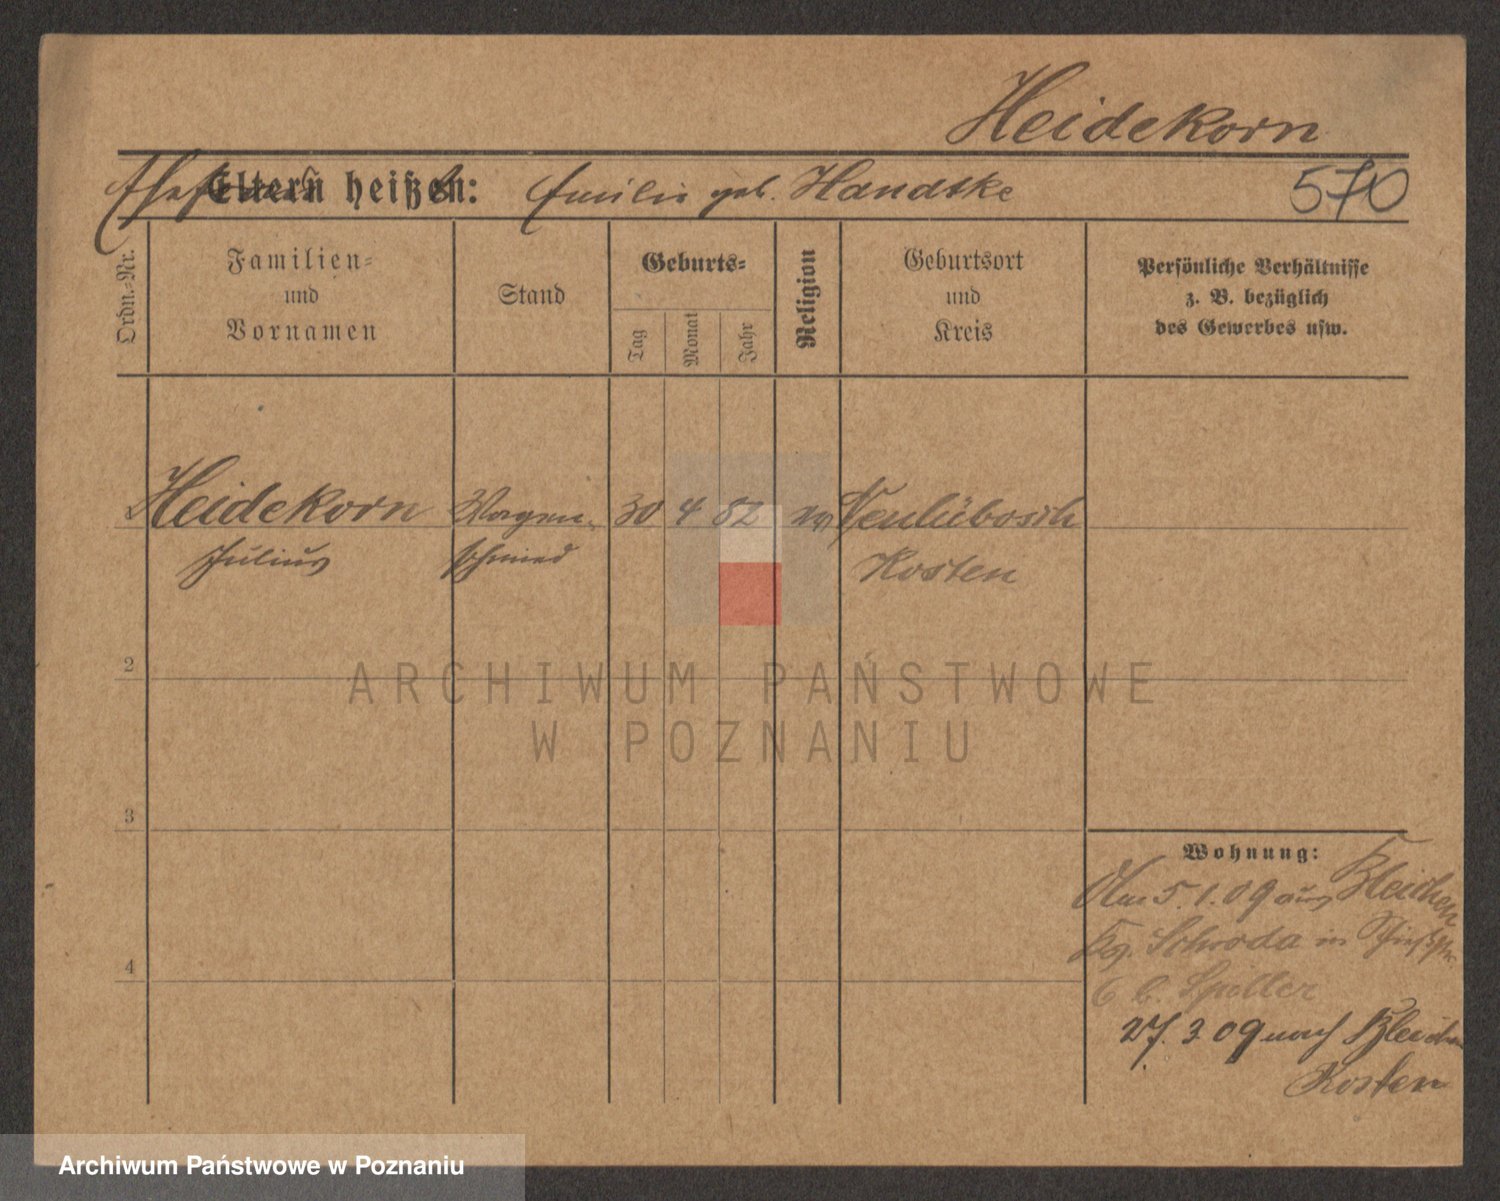 Heidekorn
Eltern heißen: Emilie geb. Handtke 570
Ordn.-Nr.
Familien-
und
Vornamen
Stand
Geburts-
Tag
Monat
Jahr
Religion
Geburtsort
und
Kreis
Persönliche Verhältnisse
z. B. bezüglich
des Gewerbes usw.
Heidekorn Wagen- 30 4 82 ev
Julius schmied Kosten
2
3
4
Wohnung:
Am 5.1.09 aus
Schroda in
6 b. Spiller
27.3 09 nach
Kosten
ARCHIWUM PAŃSTWOWE
W POZNANIU
Archiwum Państwowe w Poznaniu